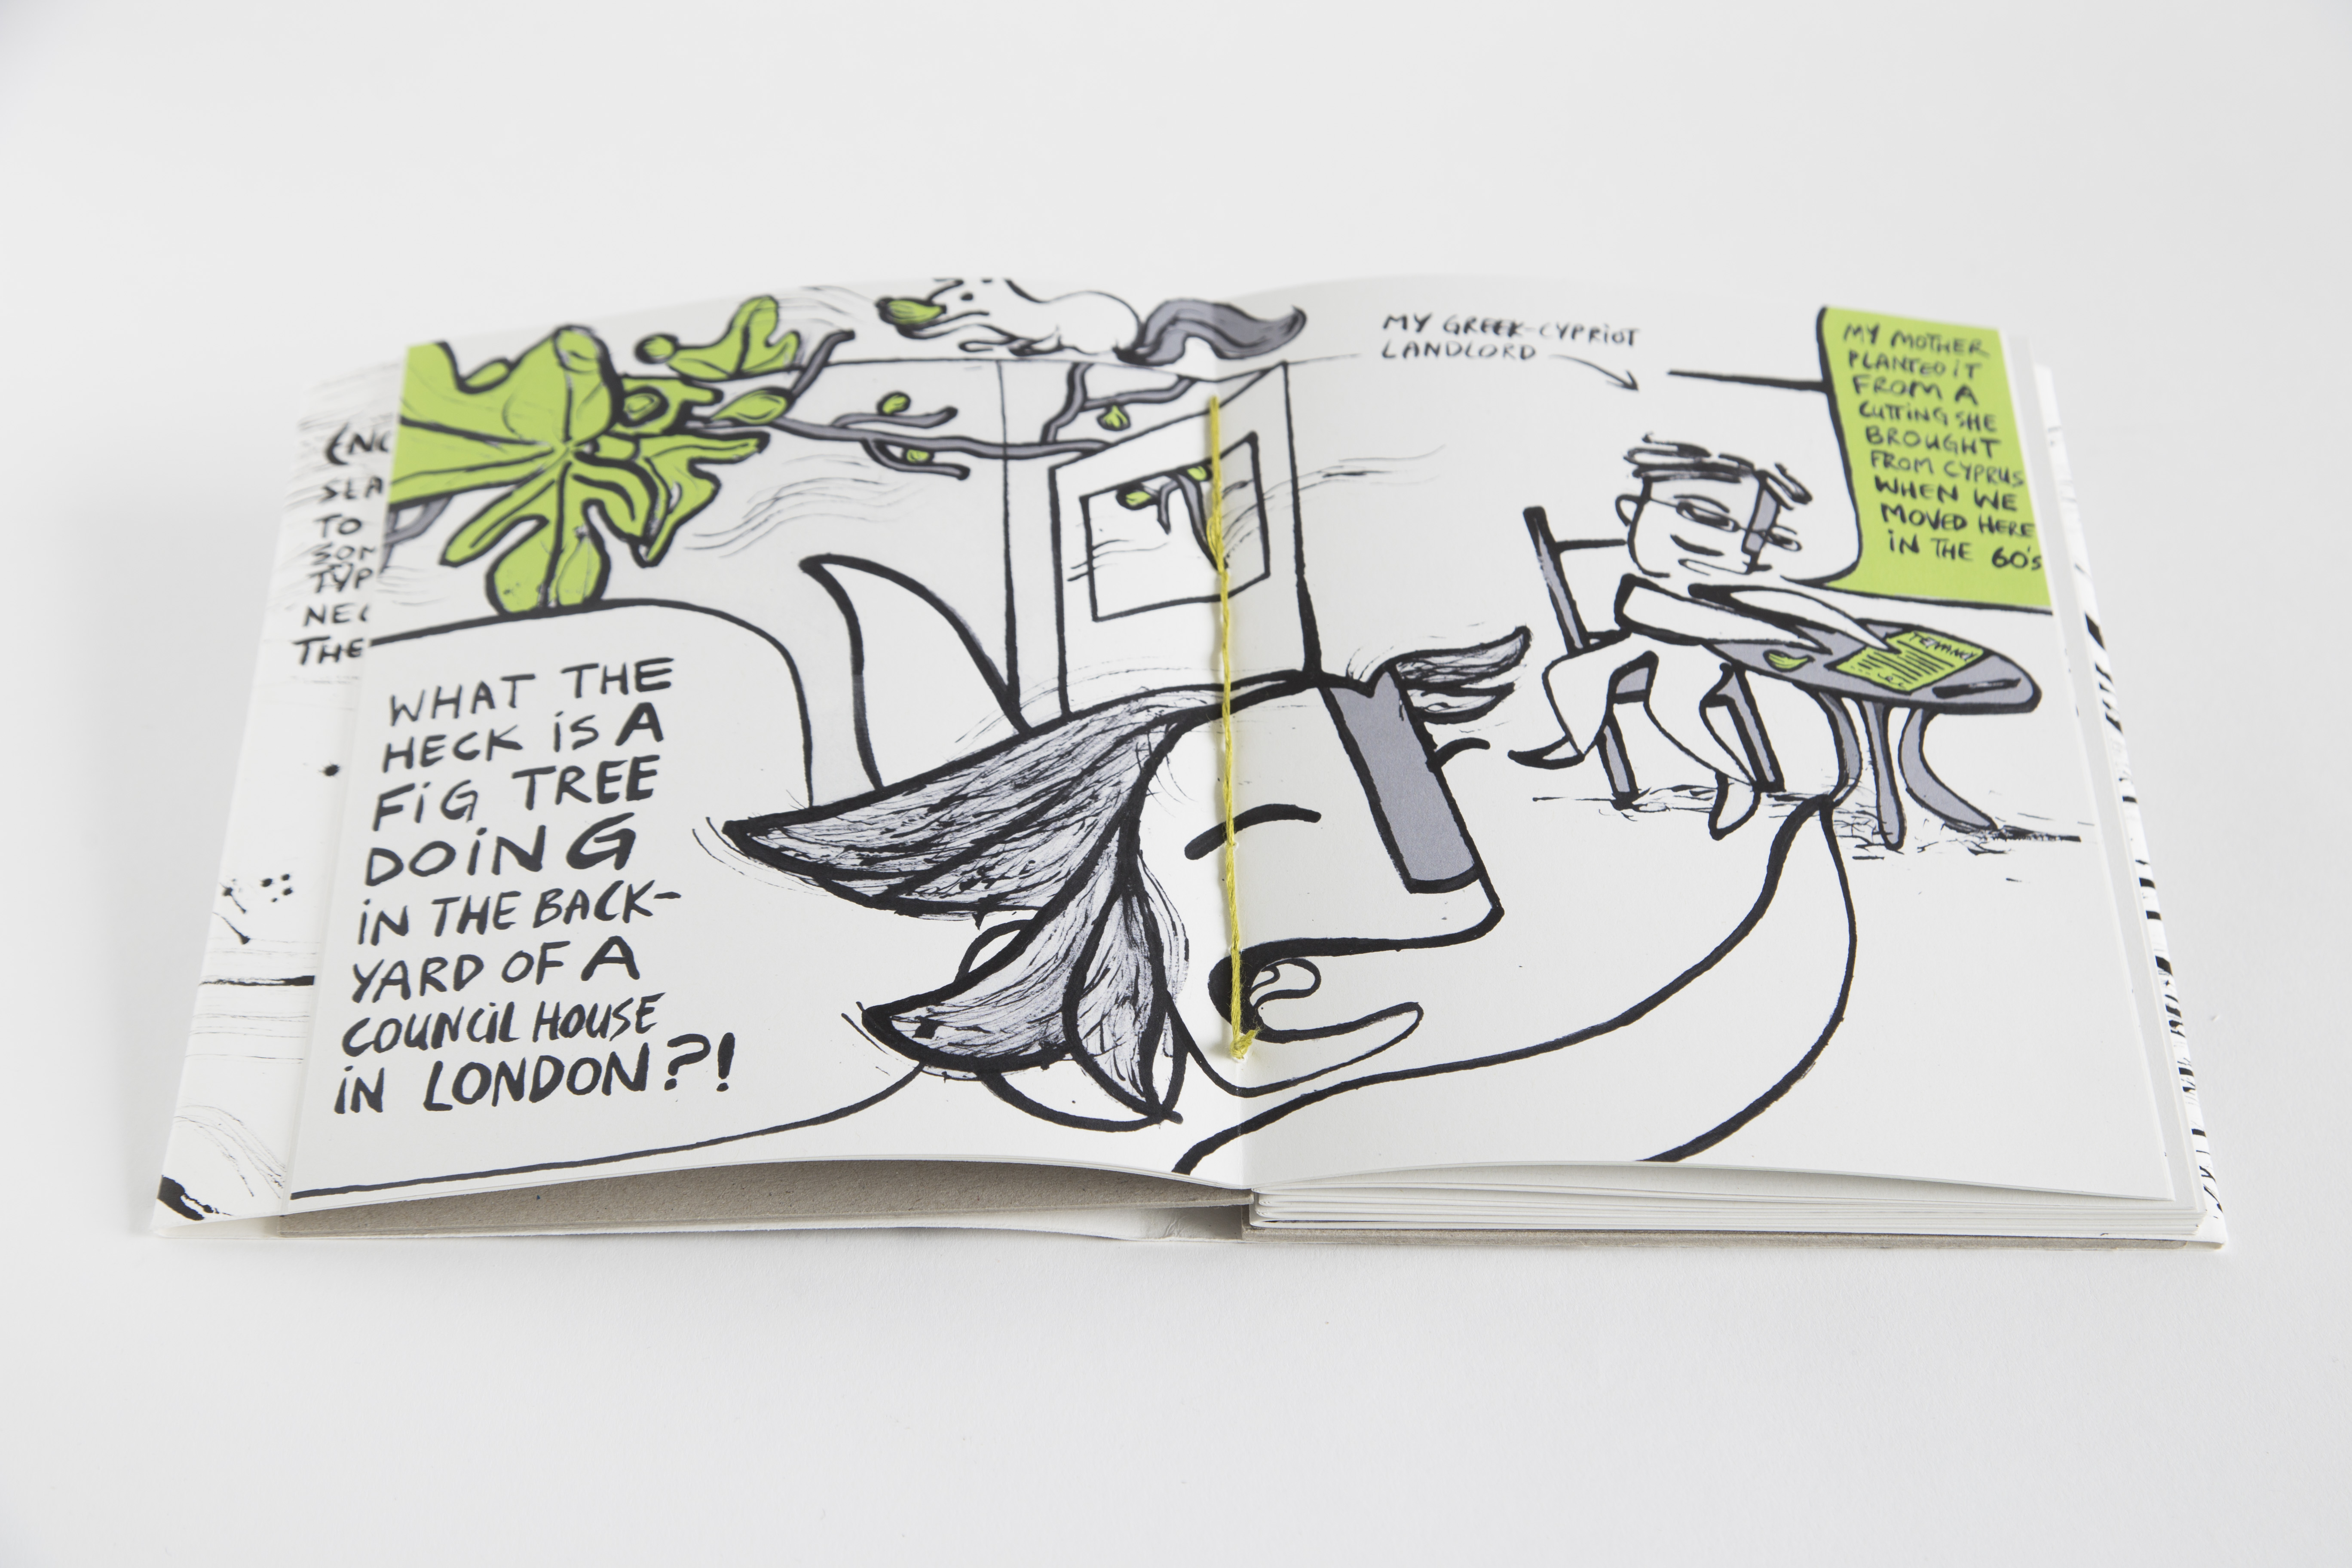 TO
THE
WHAT THE
HECK iS A
FiG TREE
DOiNG
iN THE BACK-
YARD OF A
COUNCiL HOUSE
iN LONDON?!
MY GREEK-CYPRiOT
LANDLORD
MY MOTHER
PLANTED iT
FROM A
CUTTiNG SHE
BROUGHT
FROM CYPRUS
WHEN WE
MOVED HERE
iN THE 60's